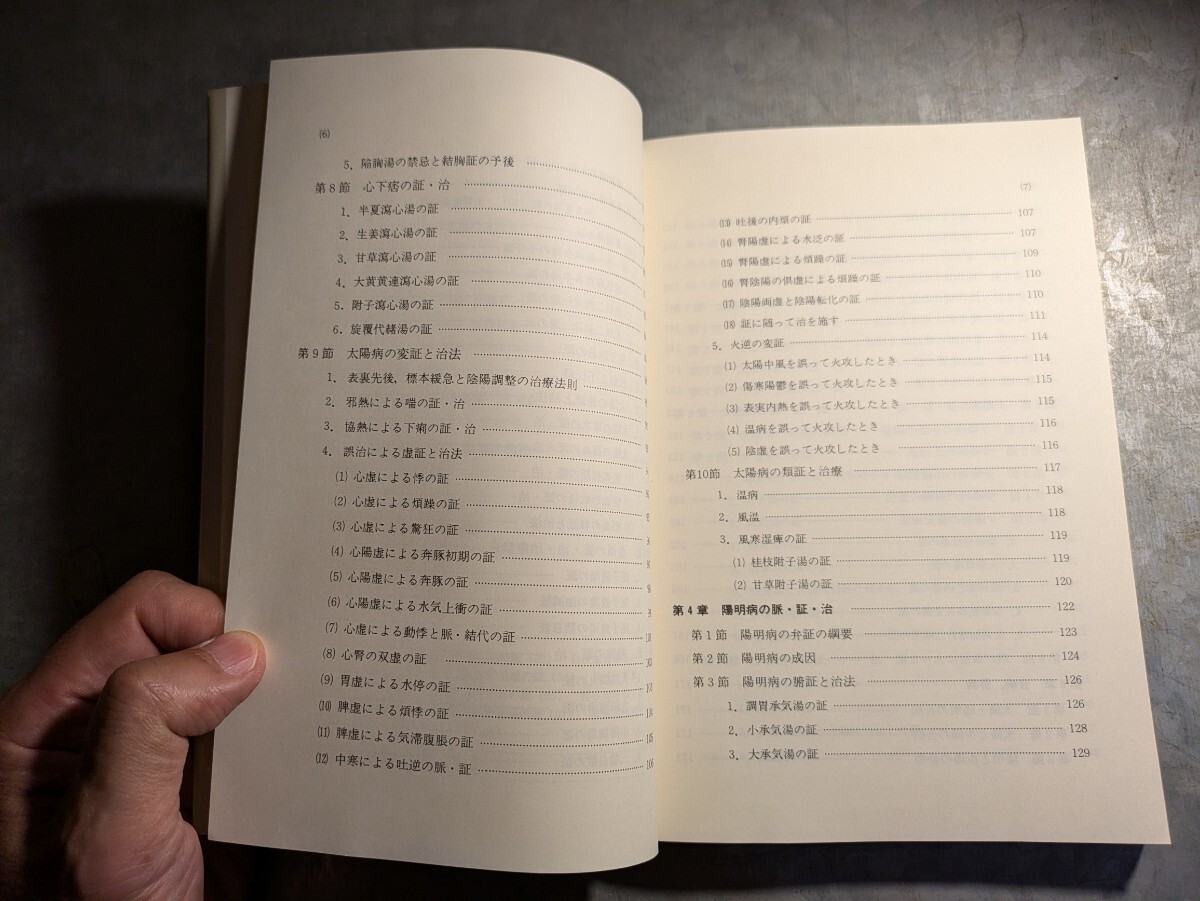 (6)
5. 陥胸湯の禁忌と結胸証の予後
第8節 心下痞の証・治
1. 半夏瀉心湯の証
2. 生姜瀉心湯の証
3. 甘草瀉心湯の証
4. 大黄黄連瀉心湯の証
5. 附子瀉心湯の証
6. 旋覆代赭湯の証
第9節 太陽病の変証と治法
1. 表裏先後,標本緩急と陰陽調整の治療法則
2. 邪熱による喘の証・治
3. 協熱による下痢の証・治
4. 誤治による虚証と治法
(1) 心虚による悸の証
(2) 心虚による煩躁の証
(3) 心虚による驚狂の証
(4) 心陽虚による奔豚初期の証
(5) 心陽虚による奔豚の証
(6) 心陽虚による水気上衝の証
(7) 心虚による動悸と脈・結代の証
(8) 心腎の双虚の証
(9) 胃虚による水停の証
(10) 脾虚による煩悸の証
(11) 脾虚による気滞腹脹の証
(12) 中寒による吐逆の脈・証 106
(7)
(13) 吐後の内煩の証 107
(14) 腎陽虚による水泛の証 107
(15) 腎陽虚による煩躁の証 109
(16) 腎陰陽の倶虚による煩躁の証 110
(17) 陰陽両虚と陰陽転化の証 110
(18) 証に随って治を施す 111
5. 火逆の変証 114
(1) 太陽中風を誤って火攻したとき 114
(2) 傷寒陽鬱を誤って火攻したとき 115
(3) 表実内熱を誤って火攻したとき 115
(4) 温病を誤って火攻したとき 116
(5) 陰虚を誤って火攻したとき 116
第10節 太陽病の類証と治療 117
1. 温病 118
2. 風温 118
3. 風寒湿痺の証 119
(1) 桂枝附子湯の証 119
(2) 甘草附子湯の証 120
第4章 陽明病の脈・証・治 122
第1節 陽明病の弁証の綱要 123
第2節 陽明病の成因 124
第3節 陽明病の腑証と治法 126
1. 調胃承気湯の証 126
2. 小承気湯の証 128
3. 大承気湯の証 129